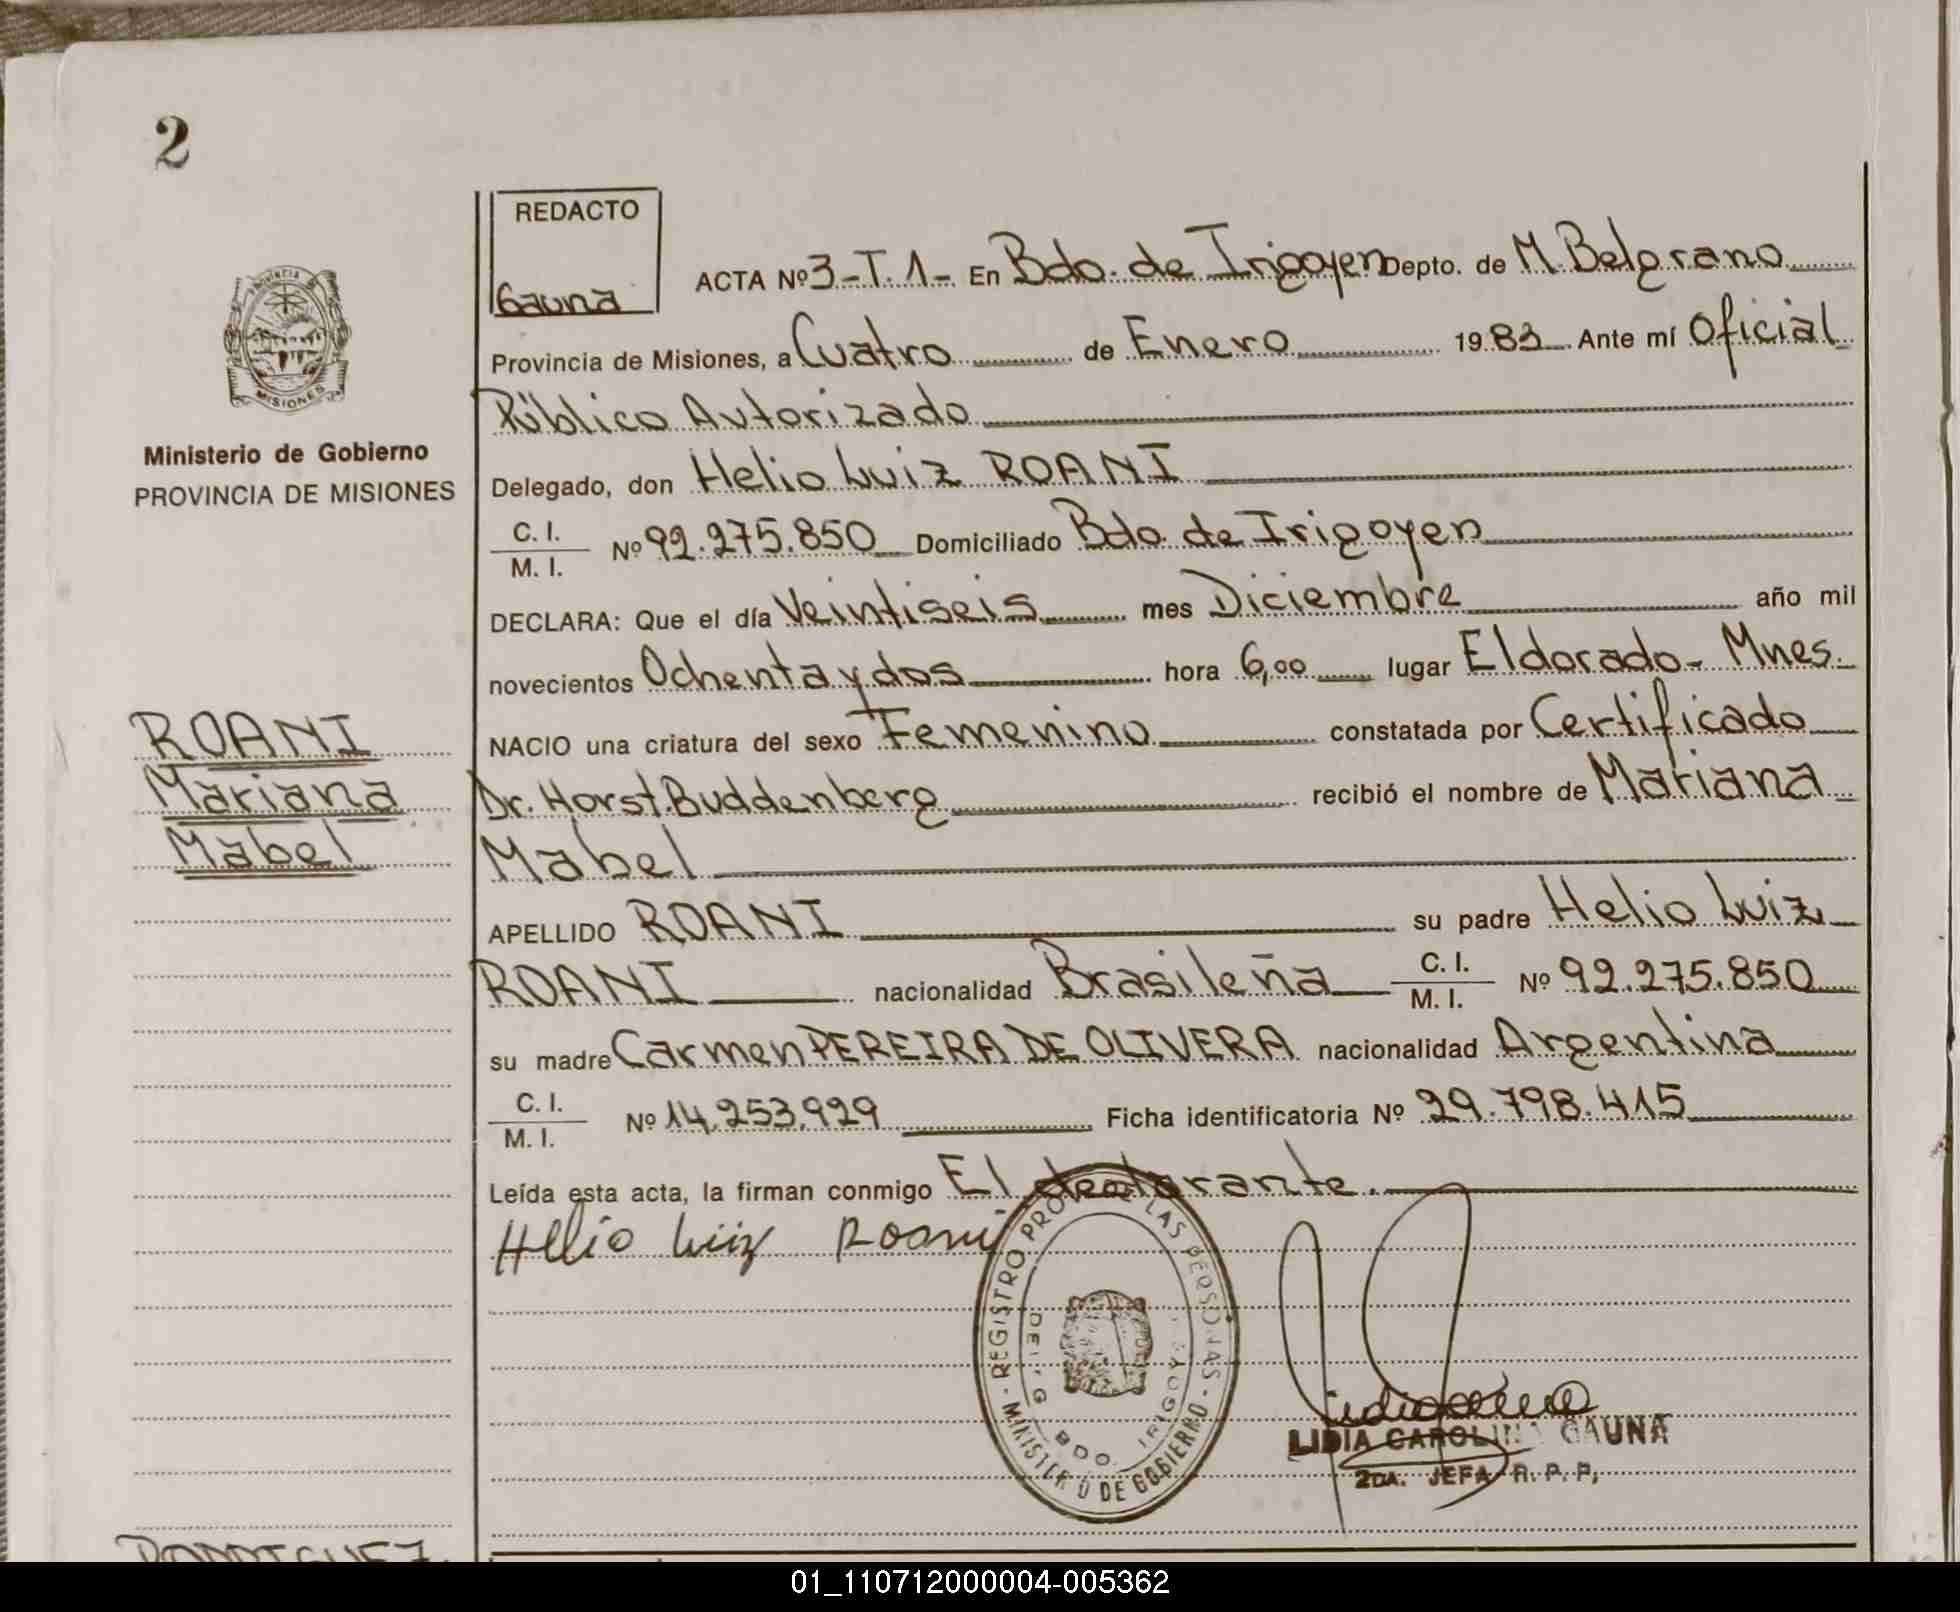 2
REDACTO
Gauna
ACTA Nº 3-T.1- En Bdo. de Irigoyen Depto. de M. Belgrano
Provincia de Misiones, a Cuatro de Enero 1983 Ante mí Oficial
Público Autorizado
Delegado, don Helio Luiz ROANI
C. I.
M. I. Nº 92.275.850 Domiciliado Bdo. de Irigoyen
DECLARA: Que el día Veintiseis mes Diciembre año mil
novecientos Ochenta y dos hora 6,00 lugar Eldorado- Mnes.
NACIO una criatura del sexo Femenino constatada por Certificado
Dr. Horst Buddenberg recibió el nombre de Mariana
Mabel
APELLIDO ROANI su padre Helio Luiz
ROANI nacionalidad Brasileña C. I.
M. I. Nº 92.275.850
su madre Carmen PEREIRA DE OLIVERA nacionalidad Argentina
C. I.
M. I. Nº 14.253.929 Ficha identificatoria Nº 29.798.415
Leída esta acta, la firman conmigo El declarante.
Helio Luiz Roani
PROVINCIA
MISIONES
Ministerio de Gobierno
PROVINCIA DE MISIONES
ROANI
Mariana
Mabel
REGISTRO PROV. LAS PERSONAS
MINISTERIO DE GOBIERNO
BDO. IRIGOYEN
LIDIA CAROLINA GAUNA
2DA. JEFA R. P. P.
RODRIGUEZ
01_110712000004-005362